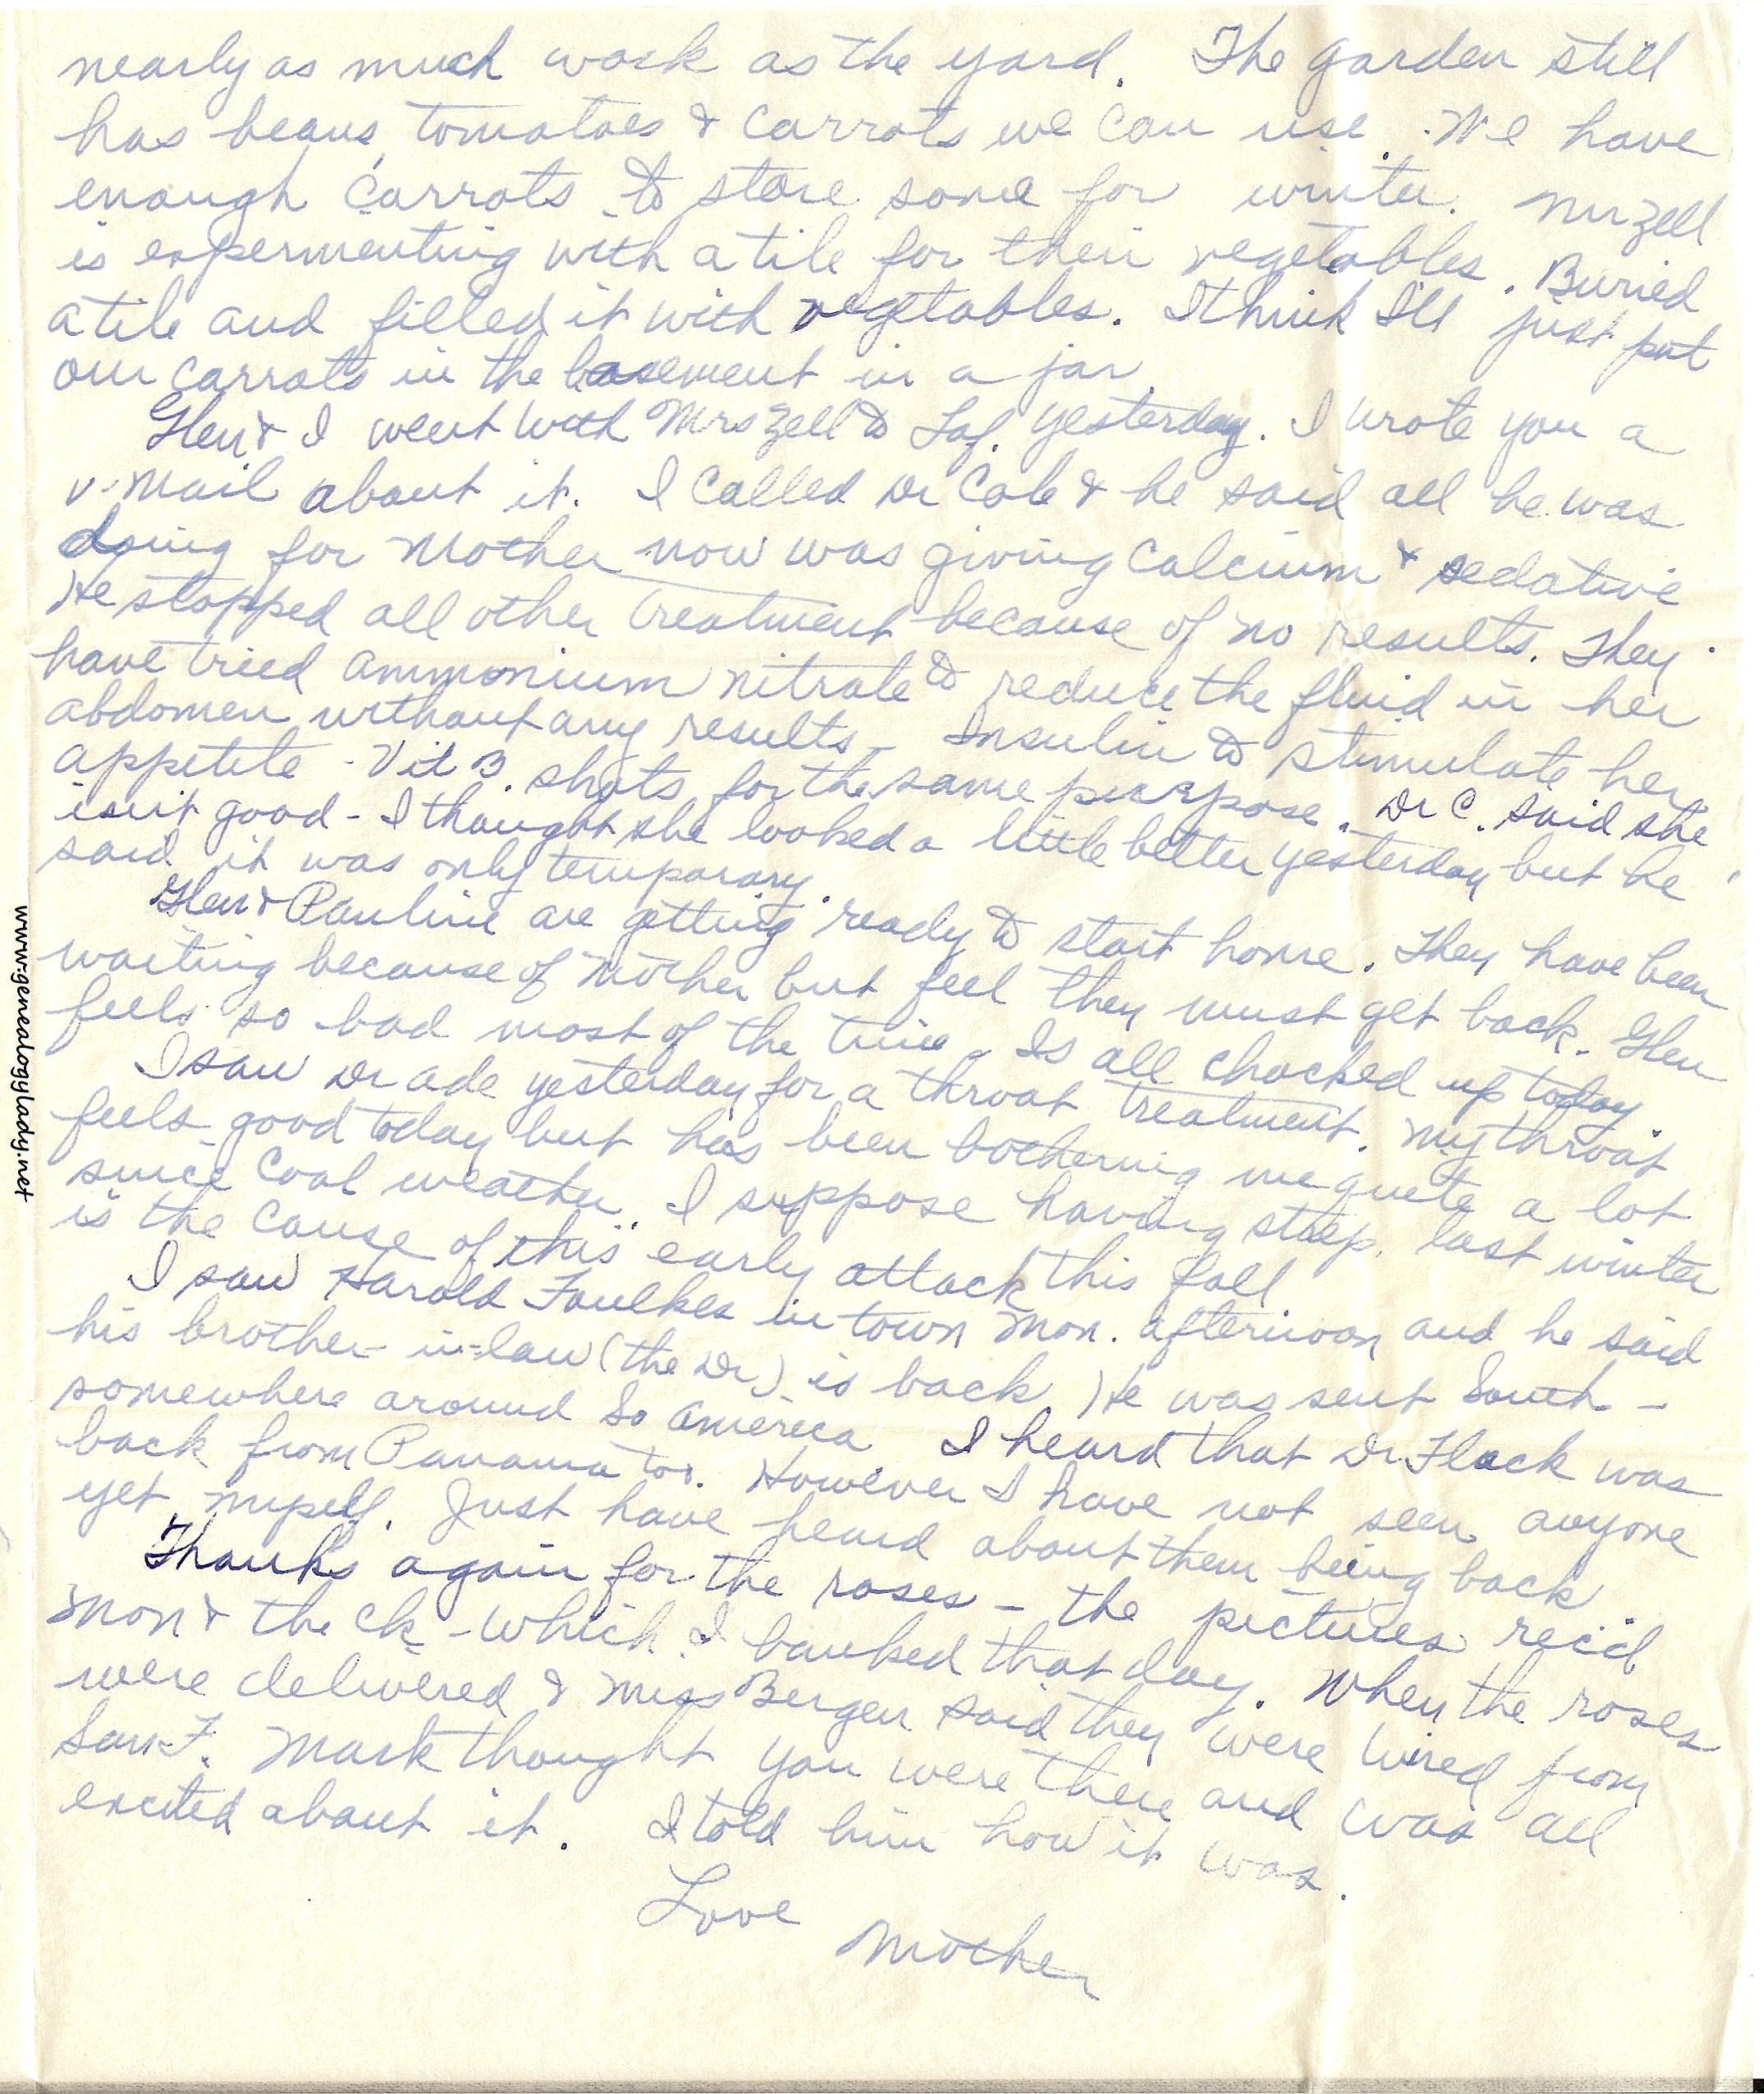 nearly as much work as the yard. The garden still
has beans, tomatoes & carrots we can use. We have
enough carrots to store some for winter. Mr Zell
is expermenting with a tile for their vegetables. Buried
a tile and filled it with vegetables. I think I'll just put
our carrots in the basement in a jar.
Glen & I went with Mrs Zell to Laf. yesterday. I wrote you a
v-mail about it. I called Dr Cole & he said all he was
doing for Mother now was giving calcium & sedative
He stopped all other treatment because of no results. They
have tried ammonium nitrate to reduce the fluid in her
abdomen without any results - Insulin to stimulate her
appetite - Vit B. shots for the same purpose. Dr C. said she
isn't good - I thought she looked a little better yesterday but he
said it was only temporary.
Glen & Pauline are getting ready to start home. They have been
waiting because of Mother but feel they must get back. Glen
feels so bad most of the time. Is all chocked up today.
I saw Dr Ade yesterday for a throat treatment. My throat
feels good today but has been bothering me quite a lot
since cool weather. I suppose having strep. last winter
is the cause of this early attack this fall
I saw Harold Foulkes in town Mon. afternoon and he said
his brother-in-law (the Dr) is back. He was sent South -
somewhere around So America I heard that Dr Flack was
back from Panama too. However I have not seen anyone
yet myself. Just have heard about them being back
Thanks again for the roses - the pictures rec'd
Mon & the ck - which I banked that day. When the roses
were delivered & Miss Bergen said they were wired from
San F. Mark thought you were there and was all
excited about it. I told him how it was.
Love
Mother
www.genealogylady.net